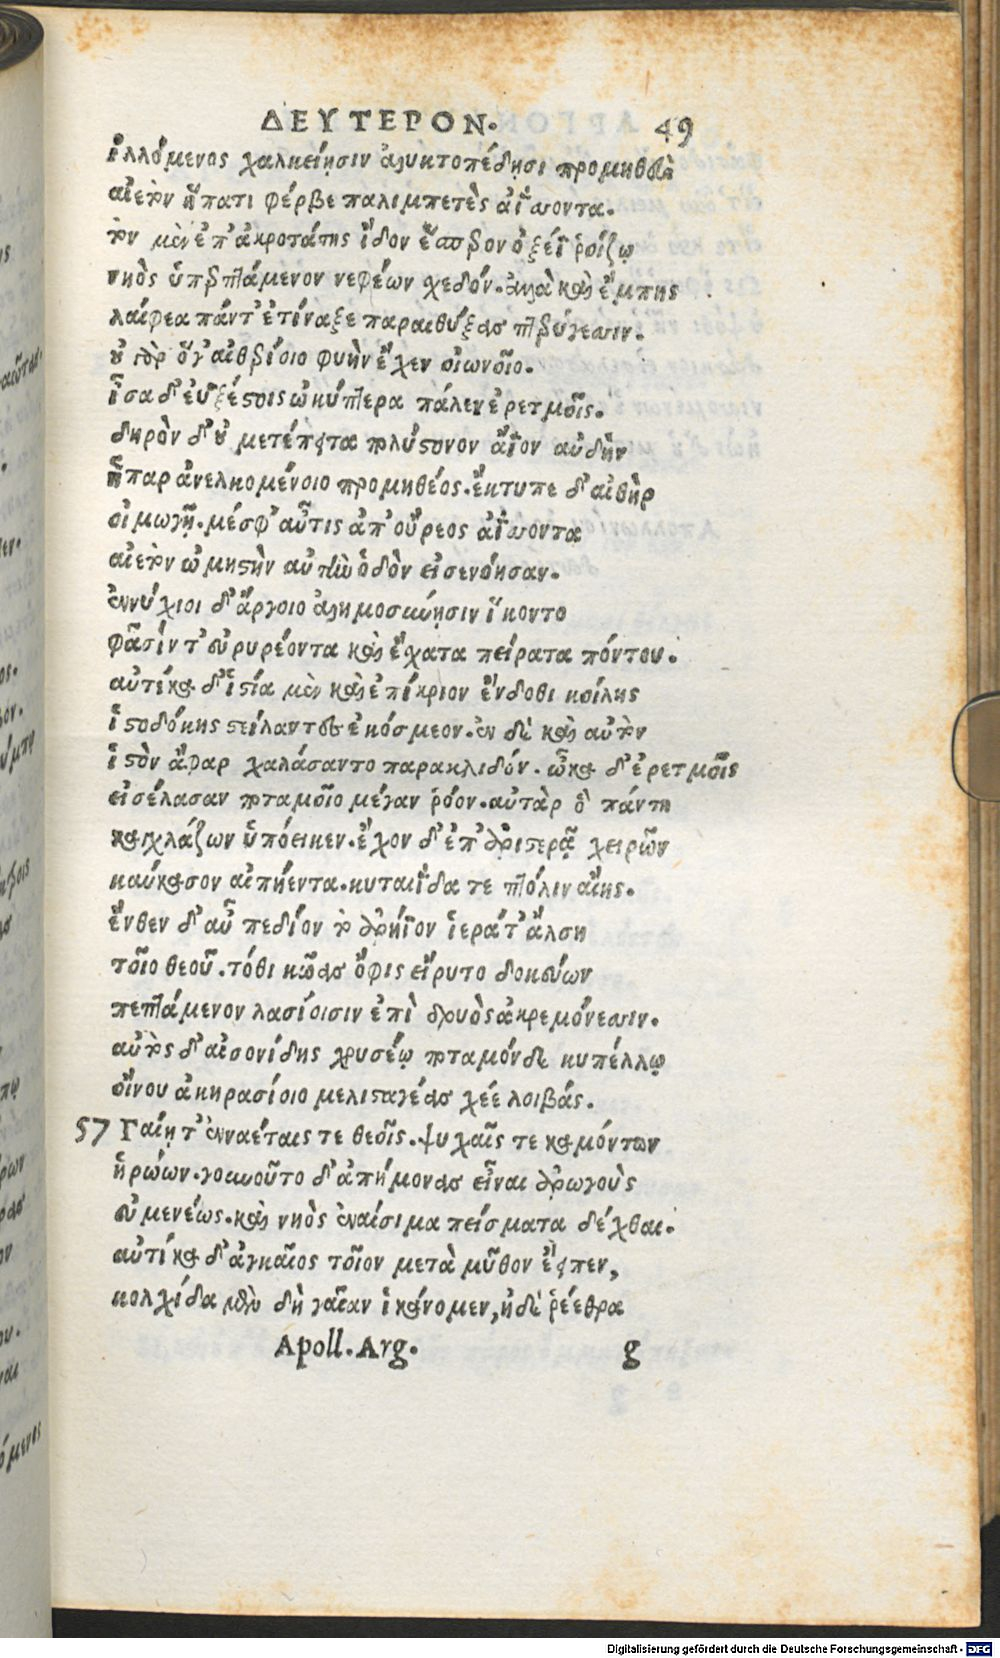 ΔΕΥΤΕΡΟΝ. 49
ἰλλόμενος χαλκείῃσιν ἀλυκτοπέδῃσι προμηθεὺς
αἰετὸν ἥπατι φέρβε παλιμπετὲς ἀΐσσοντα.
τὸν μὲν ἐπ' ἀκροτάτης ἴδον ἕσπερον ὀξέϊ ῥοίζῳ
νηὸς ὑπερπτάμενον νεφέων σχεδόν. ἀλλὰ καὶ ἔμπης
λαίφεα πάντ' ἐτίναξε παραιθύξας πτερύγεσσιν.
οὐ γὰρ ὅγ' αἰθερίοιο φυὴν ἔχεν οἰωνοῖο.
ἶσα δ' ἐϋξέστοις ὠκύπτερα πάλεν ἐρετμοῖς.
δηρὸν δ' οὐ μετέπειτα πολύστονον ἄϊον αὐδὴν
ἧπαρ ἀνελκομένοιο προμηθέος. ἔκτυπε δ' αἰθὴρ
οἰμωγῇ. μέσφ' αὖτις ἀπ' οὔρεος ἀΐσσοντα
αἰετὸν ὠμηστὴν αὐτὴν ὁδὸν εἰσενόησαν.
ἐννύχιοι δ' ἄργοιο δαημοσύνῃσιν ἵκοντο
φᾶσίν τ' εὐρυρέοντα καὶ ἔσχατα πείρατα πόντου.
αὐτίκα δ' ἱστία μὲν καὶ ἐπίκριον ἔνδοθι κοίλης
ἱστοδόκης στείλαντες ἐκόσμεον. ἐν δὲ καὶ αὐτὸν
ἱστὸν ἄφαρ χαλάσαντο παρακλιδόν. ὦκα δ' ἐρετμοῖς
εἰσέλασαν ποταμοῖο μέγαν ῥόον. αὐτὰρ ὃ πάντη
καιχλάζων ὑπόεικεν. ἔχον δ' ἐπ' ἀριστερᾷ χειρῶν
καύκασον αἰπήεντα. κυταιΐδα τε πτόλιν αἴης.
ἔνθεν δ' αὖ πεδίον τὸ ἀρήϊον ἱερά τ' ἄλση
τοῖο θεοῦ. τόθι κῶας ὄφις εἴρυτο δοκεύων
πεπτάμενον λασίοισιν ἐπὶ δρυὸς ἀκρεμόνεσσιν.
αὐτὸς δ' αἰσονίδης χρυσέῳ ποταμόνδε κυπέλλῳ
οἴνου ἀκηρασίοιο μελισταγέας χέε λοιβάς.
57 Γαίῃ τ' ἐνναέταις τε θεοῖς. ψυχαῖς τε καμόντων
ἡρώων. γουνοῦτο δ' ἀπήμονας εἶναι ἀρωγοὺς
εὐμενέως. καὶ νηὸς ἐναίσιμα πείσματα δέχθαι.
αὐτίκα δ' ἀγκαῖος τοῖον μετὰ μῦθον ἔειπεν,
κολχίδα μὲν δὴ γαῖαν ἱκάνομεν, ἠδὲ ῥέεθρα
Apoll. Arg. g
Digitalisierung gefördert durch die Deutsche Forschungsgemeinschaft - DFG